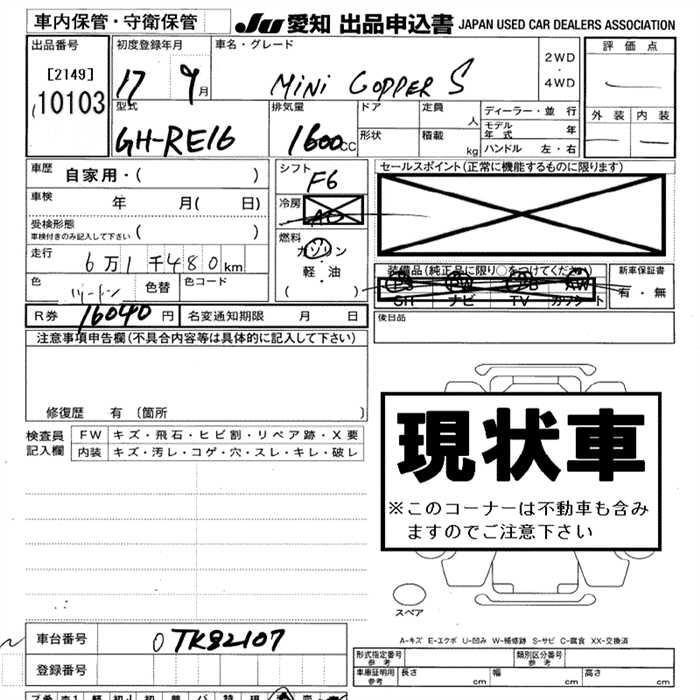 車内保管・守衛保管
JU 愛知 出品申込書 JAPAN USED CAR DEALERS ASSOCIATION
出品番号 初度登録年月 車名・グレード 2WD ・ 4WD 評価点
[2149] 10103 17 9月 MINI COPPER S
型式 排気量 ドア 定員 人 ディーラー・並行 外装 内装
GH-RE16 1600cc 形状 積載 kg モデル年式 年
ハンドル 左・右
車歴 自家用・( ) シフト F6 セールスポイント(正常に機能するものに限ります)
車検 年 月( 日) 冷房 AC
受検形態 車検付きのみ記入して下さい ・( ) 燃料 ガソリン・軽・油 ( )
走行 6万1千480km 装備品(純正品に限り○をつけてください) 新車保証書
色 色替 色コード PS PW AW 有・無
SH ナビ TV カセット
R券 16040円 名変通知期限 月 日 後日品
注意事項申告欄(不具合内容等は具体的に記入して下さい)
修復歴 有 〔箇所 〕
検査員記入欄 FW キズ・飛石・ヒビ割・リペア跡・X要
内装 キズ・汚レ・コゲ・穴・スレ・キレ・破レ
現状車
※このコーナーは不動車も含み
ますのでご注意下さい
スペア
A-キズ E-エクボ U-凹み W-補修跡 S-サビ C-腐食 XX-交換済
車台番号 0TK82107
登録番号
形式指定番号 参考 類別区分番号 参考
車庫証明用 参考 長さ cm 幅 cm 高さ cm